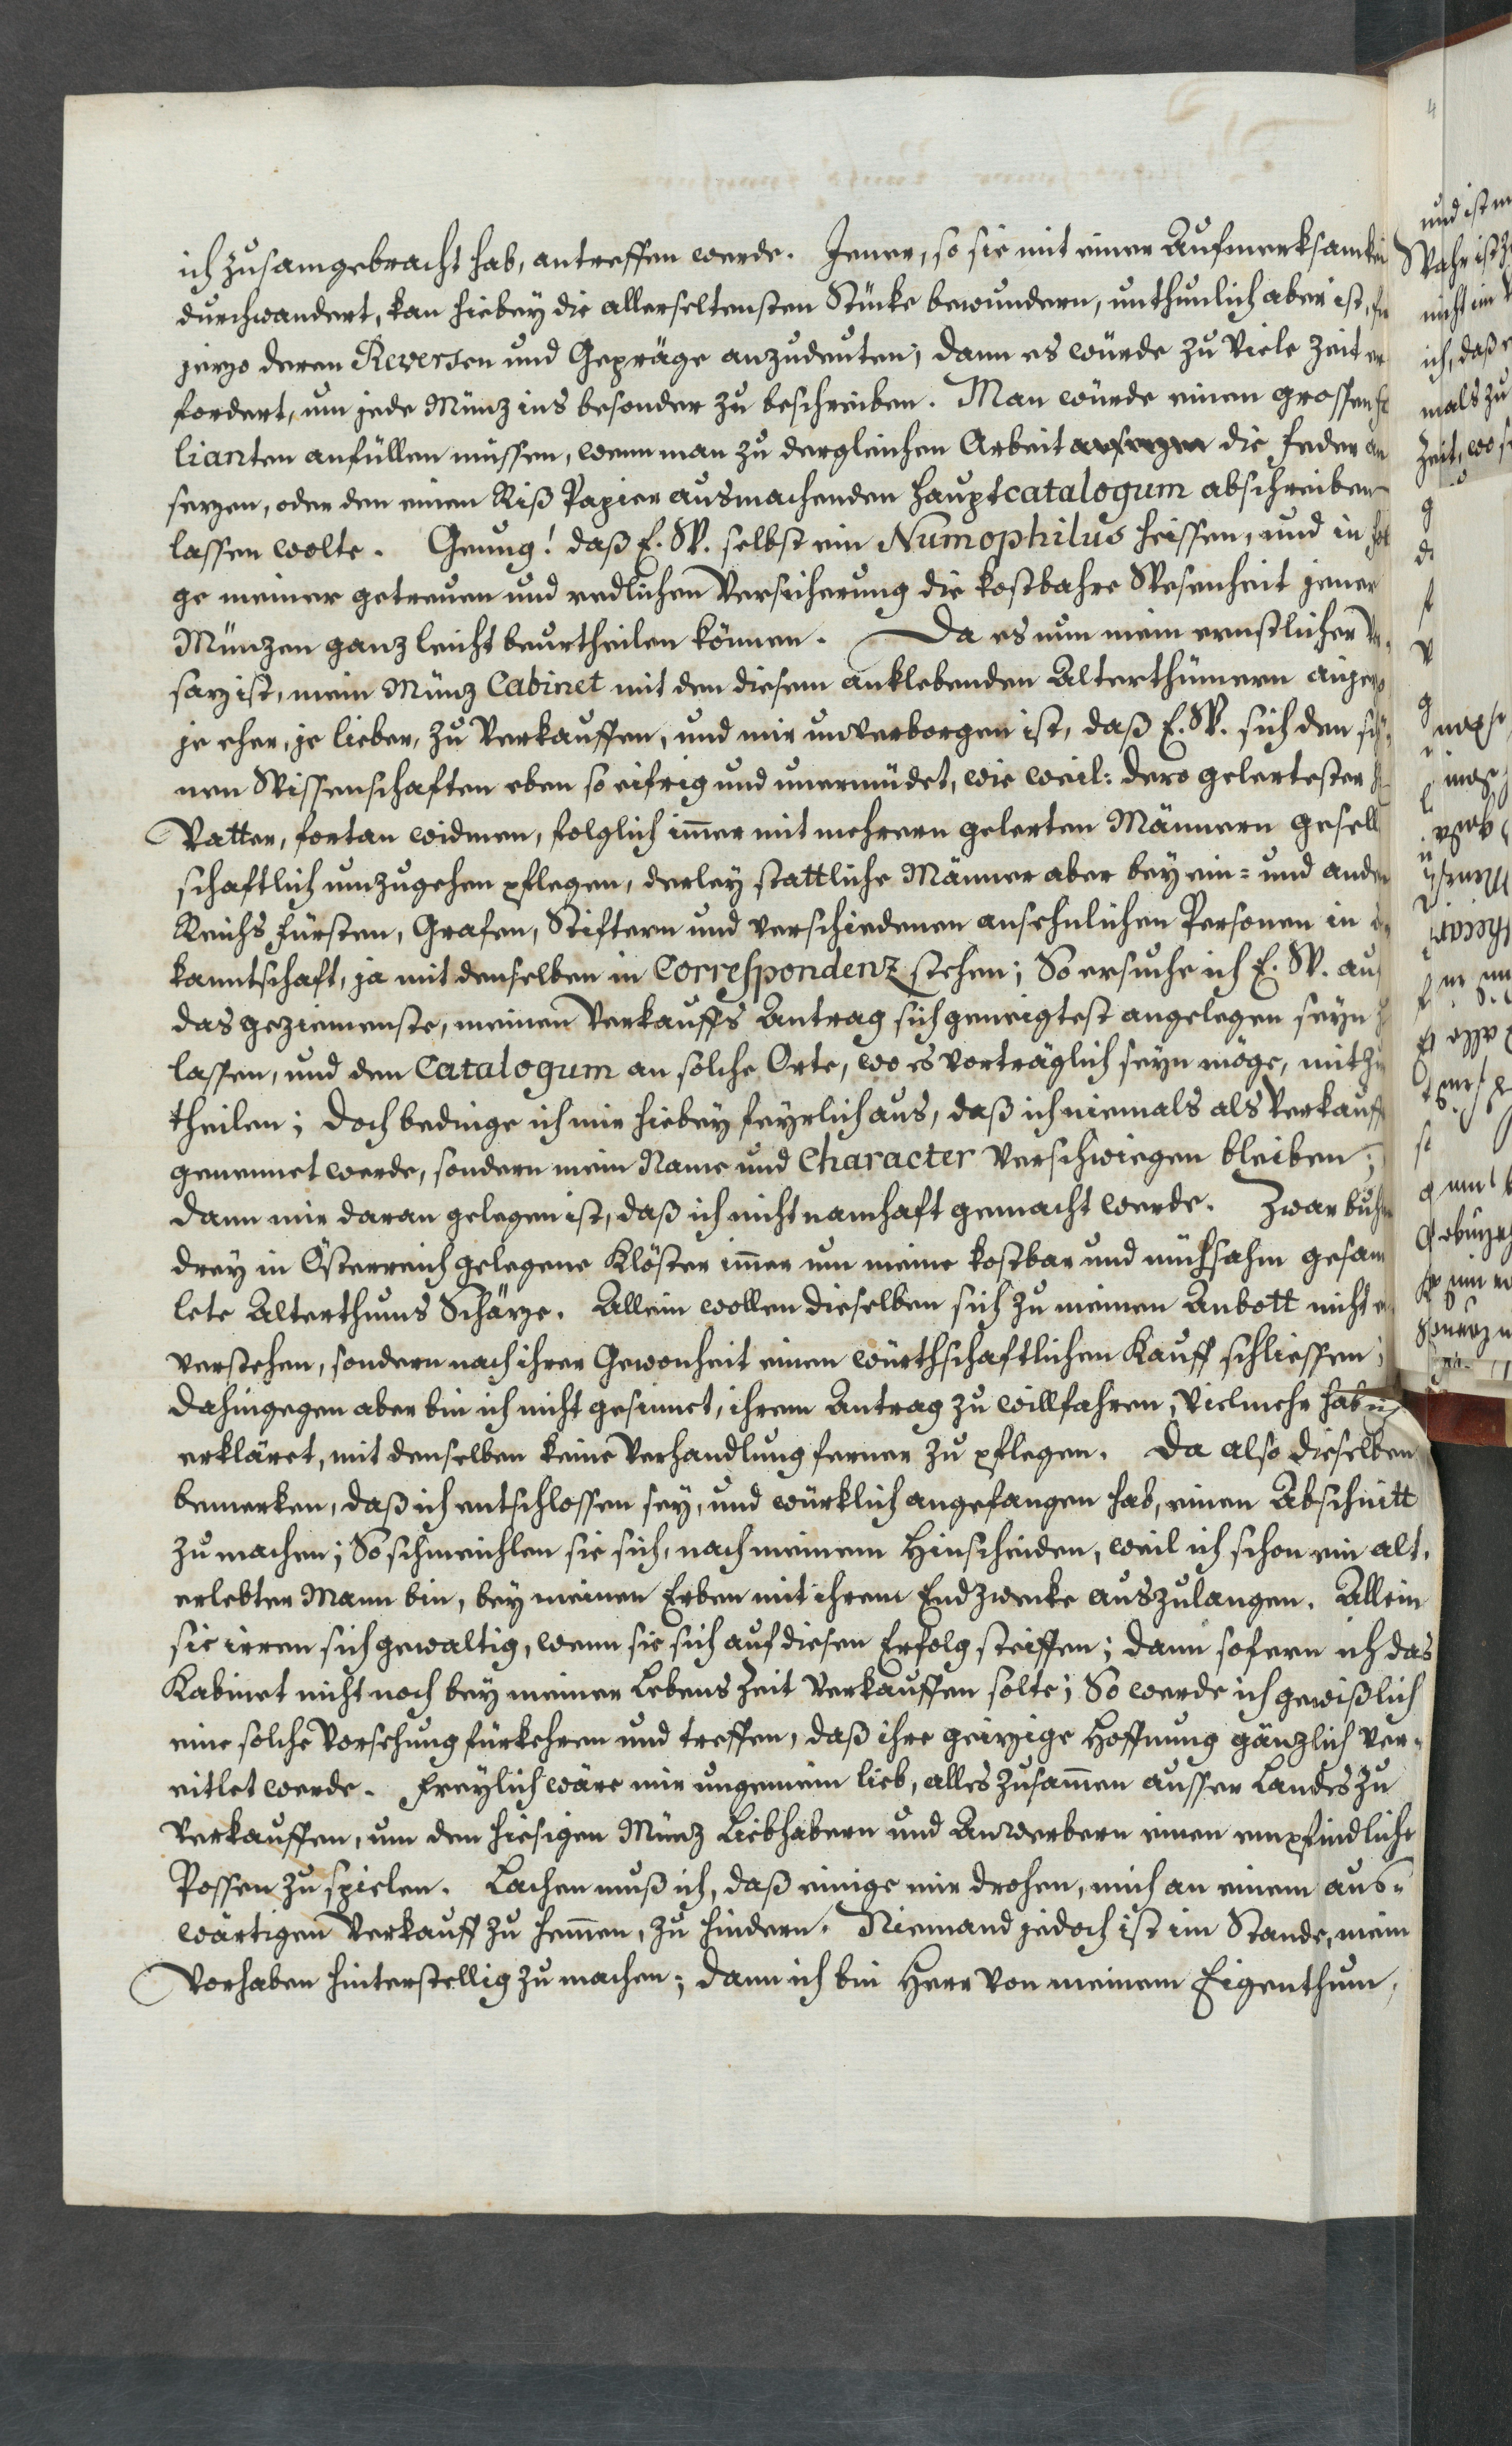 ich zusamgebracht hab, antreffen werde. Jener, so sie mit einer Aufmerksamkei
durchwandert, kan hiebey die allerseltensten Stücke bewundern, unthunlich aber ist,
jezo deren Reversen und Gepräge anzudeuten; dann es würde zu viele Zeit er
fordert, um jede Münz ins besonder zu beschreiben. Man würde einen grossen fo
lianten anfüllen müssen, wenn man zu dergleichen Arbeit ansezen die feder an
sezen, oder den einen Riß Papier ausmachenden Hauptcatalogum abschreiben
lassen wolte. Genug! daß E. W. selbst ein Numophilus heissen, und in fol
ge meiner getreuen und redlichen Versicherung die kostbahre Wesenheit jener
Münzen ganz leicht beurtheilen können. Da es nun mein ernstlicher
saz ist, mein Münz Cabinet mit den diesem anklebenden Alterthümern anjezo
je eher, je lieber, zu verkauffen, und mir unverborgen ist, daß E. W. sich den schö
nen Wissenschaften eben so eifrig und unermüdet, wie weil: dero gelertester H
Vatter, fortan widmen, folglich im̄er mit mehrern gelerten Männern gesell
schaftlich umzugehen pflegen, derley stattliche Männer aber bey ein= und ander
Reichs fürsten, Grafen, Stiftern und verschiedenen ansehnlichen Personen in
kanntschaft, ja mit denselben in Correspondenz stehen; So ersuche ich E. W. auf
das geziemenste, meinen Verkauffs Antrag sich geneigtest angelegen seyn
lassen, und den Catalogum an solche Orte, wo es vorträglich seyn möge, mitzu
theilen; doch bedinge ich mir hiebey feyrlich aus, daß ich niemals als Verkauff
genennet werde, sondern mein Name und Character verschwiegen bleiben;
dann mir daran gelegen ist, daß ich nicht namhaft gemacht werde. Zwar buhl
drey in Österreich gelegene Klöster im̄er um meine kostbar und mühsahm gesam
lete Alterthums Schäze. Allein wollen dieselben sich zu meinen Anbott nicht
verstehen, sondern nach ihrer Gewonheit einen würthschaftlichen Kauff schliessen;
dahingegen aber bin ich nicht gesinnet, ihrem Antrag zu willfahren, vielmehr hab ich
erkläret, mit denselben keine Verhandlung ferner zu pflegen. Da also dieselben
bemerken, daß ich entschlossen sey, und würklich angefangen hab, einen Abschnitt
zu machen; So schmeichlen sie sich, nach meinem Hinscheiden, weil ich schon ein alt,
erlebter Mann bin, bey meinen Erben mit ihrem Endzwecke auszulangen. Allein
sie irren sich gewaltig, wenn sie sich auf diesen Erfolg steiffen; dann sofern ich das
Kabinet nicht noch bey meiner Lebens Zeit verkauffen solte; So werde ich gewißlich
eine solche Vorsehung fürkehren und treffen, daß ihre geizige Hoffnung gänzlich ver=
eitlet werde. Freylich wäre mir ungemein lieb, alles zusam̄en ausser Landes zu
verkauffen, um den hiesigen Münz Liebhabern und Anwerbern einen empfindliche
Possen zu spielen. Lachen muß ich, daß einige mir drohen, mich an einem aus=
wärtigen Verkauff zu hem̄en, zu hindern. Niemand jedoch ist im Stande, mein
Vorhaben hinterstellig zu machen; dann ich bin Herr von meinem Eigenthum,